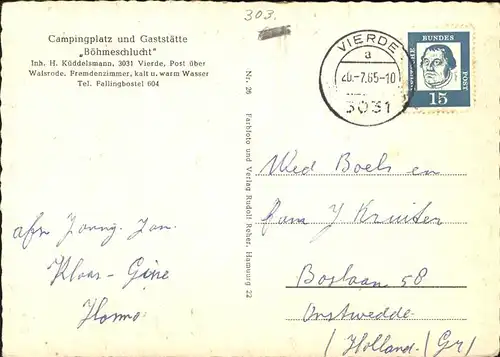 303.
Campingplatz und Gaststätte
„Böhmeschlucht"
Inh. H. Küddelsmann, 3031 Vierde, Post über
Walsrode. Fremdenzimmer, kalt u. warm Wasser
Tel. Fallingbostel 604
VIERDE
a
20.-7.65-10
3031
DEUTSCHE
BUNDES
POST
15
Nr. 26 Farbfoto und Verlag Rudolf Reher, Hamburg 22
Wed Boels en
fam J Kruiter
Boslaan 58
Onstwedde
(Holland) (Gr)
afz. Jan.
Klaas - Gine
Harmo